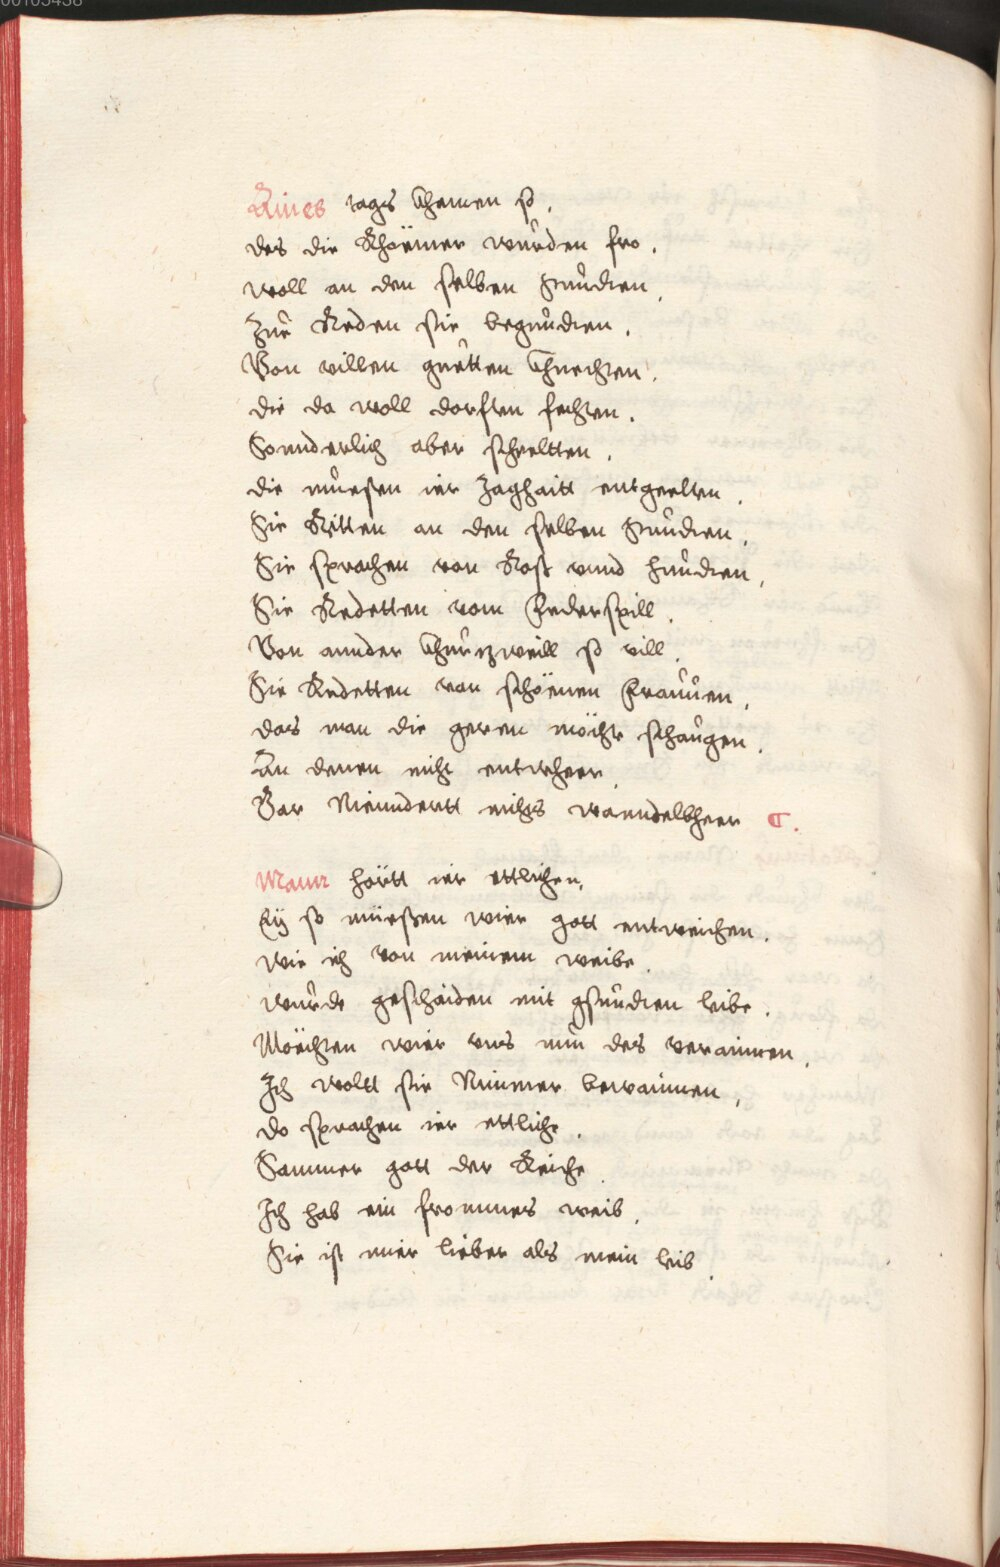 00105438
Aines tags khamen so.
des die Rhöemer wurden fro.
woll an den selben Stundten.
Zue Reden sie begundten.
Von villen guetten khnechten.
die da woll dorfften fechten.
Sonnderlich aber scheeltten.
die muesen ier Zaghaitt entgeelten.
Sie Ritten an den selben Stundten.
Sie sprachen von Roß vnnd hundten.
Sie Redetten vom Federspill.
Von annder khurzweill so vill.
Sie Redetten von schöenen Frauuen.
das man die geren möcht schaugen.
An denen nicht entwheer
Gar Nienndertt nichts wanndelbheer.
Wann hörtt ier ettlichen.
Eÿ so müeßen wier gott entweichen.
wie ich von meinem weibe.
wurde geschaiden mit gsundten leibe.
Möechten wier vns nun des verainnen.
Ich woltt sie Nimmer bewainnen.
do sprachen ier ettliche.
Sammer gott der Reiche
Ich hab ein frommes weib.
Sie ist mier lieber als mein leib.